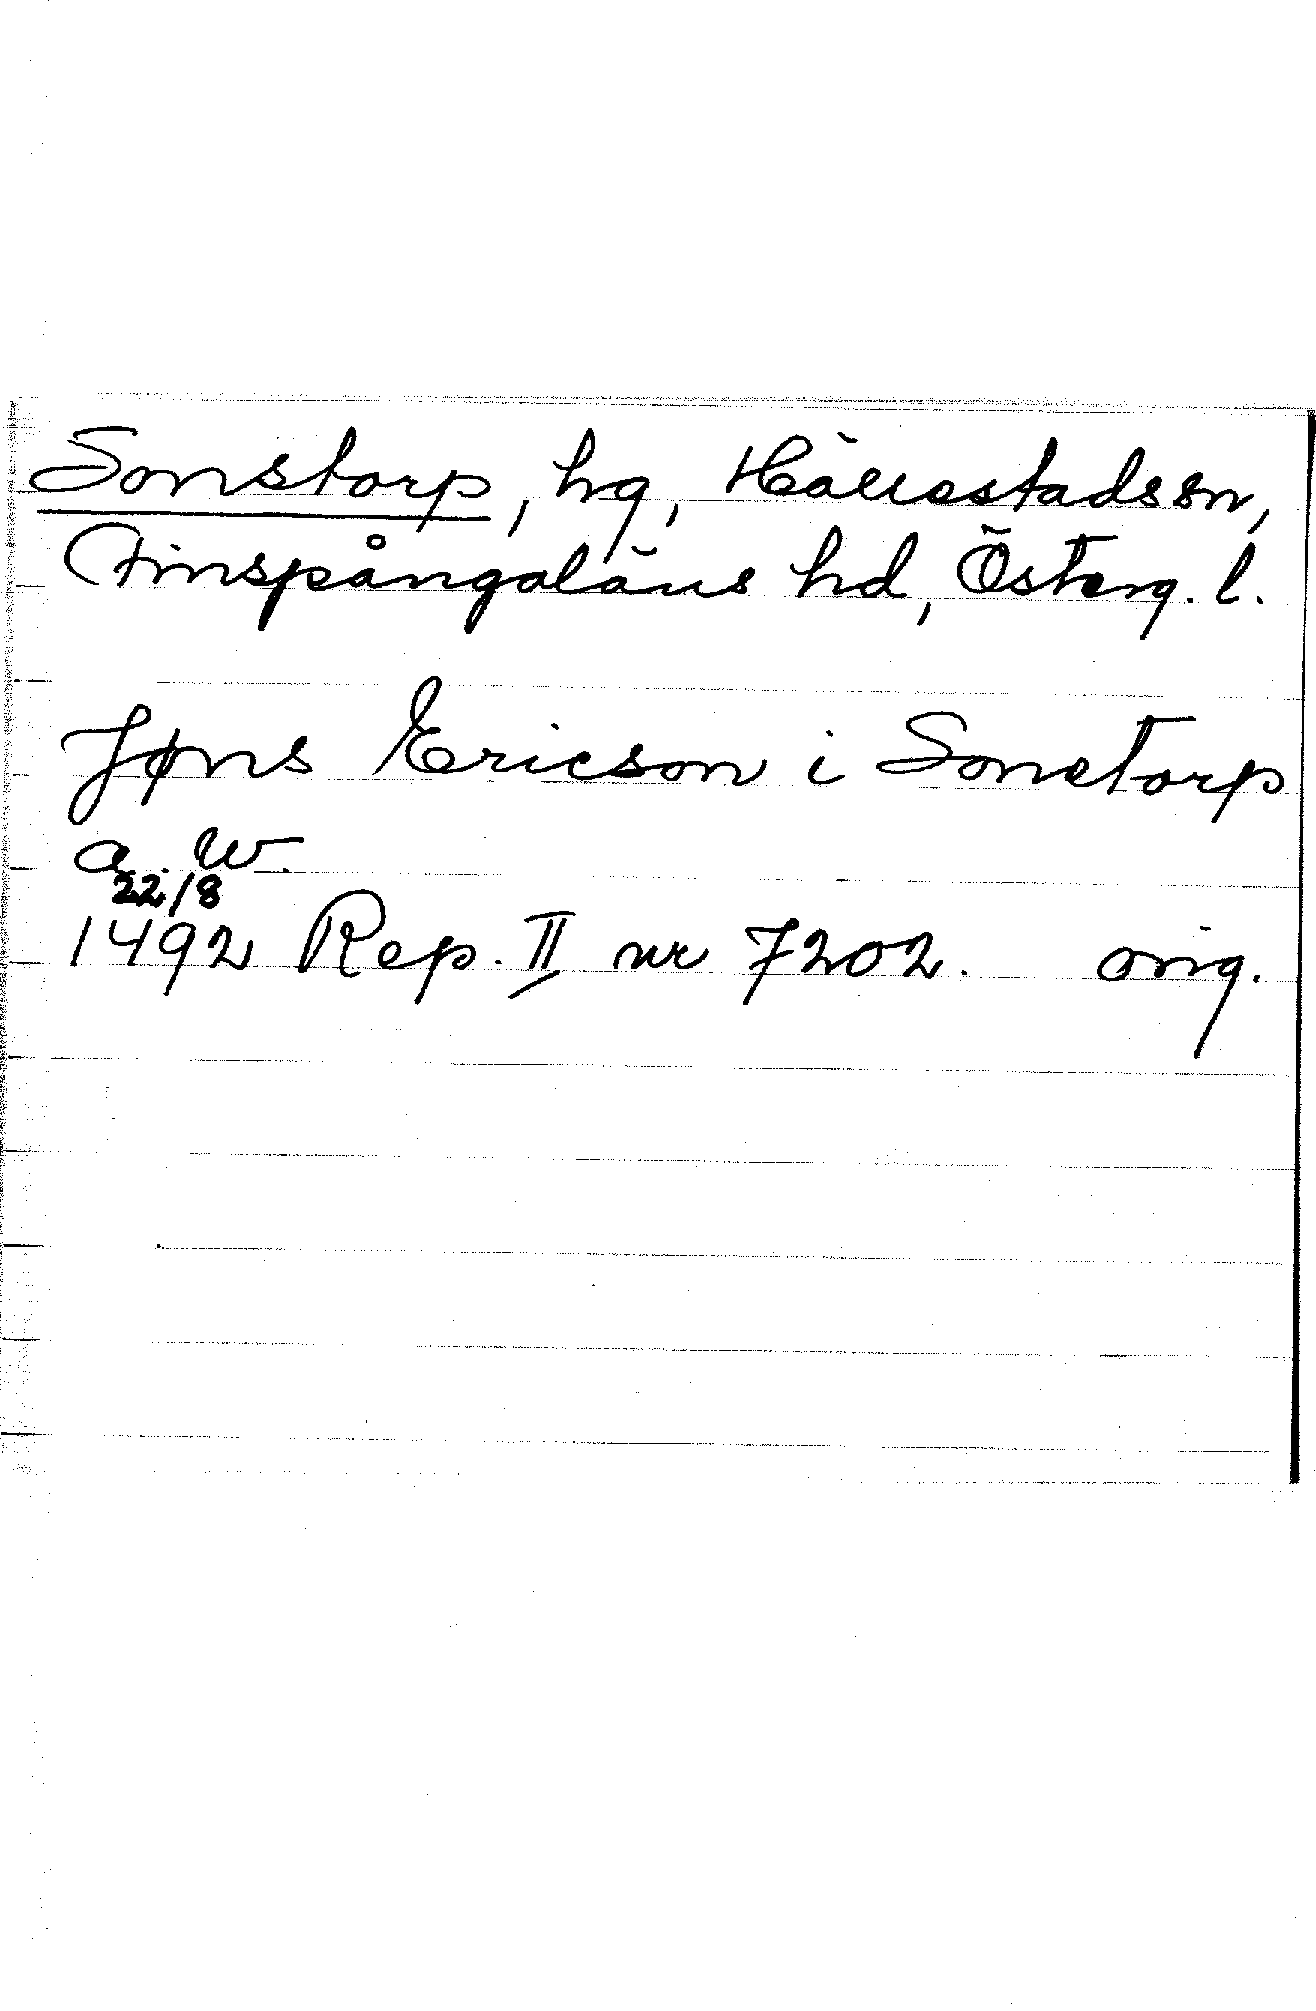 Sonstorp, hg, Hällestads sn,
Finspångaläns hd, Österg. l.
Jøns Ericson i Sonstorp
a W.
22/8
1492 Rep. II nr 7202. orig.